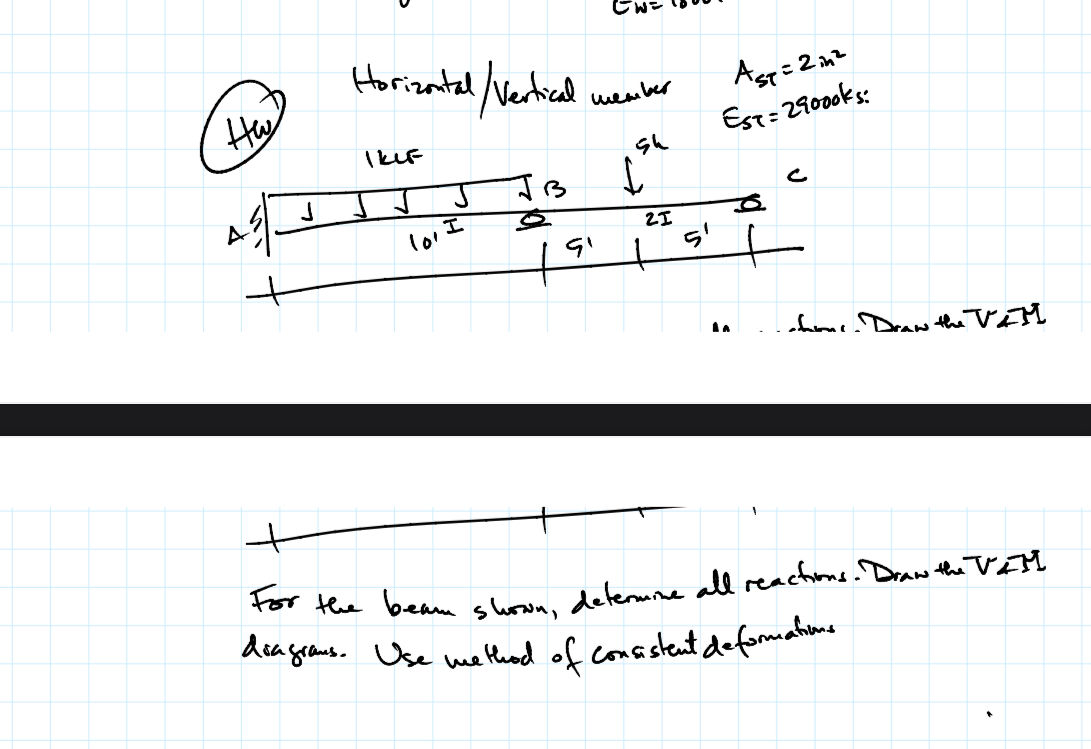 Horizontal/Vertical member
A_ST = 2 in²
E_ST = 29000ksi
HW
1 KLF
5k
A
B
C
10' I
2I
5'
5'
Draw the V & M
For the beam shown, determine all reactions. Draw the V & M
diagrams. Use method of consistent deformations